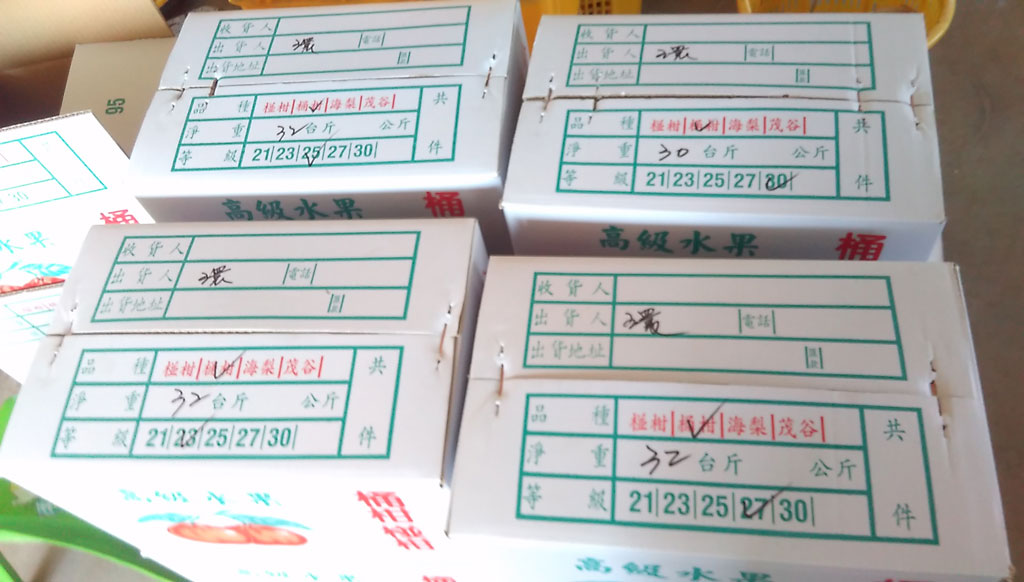 收貨人
出貨人 環 電話
出貨地址
品種 椪柑 桶柑 海梨 茂谷 共
淨重 32 台斤 公斤
等級 21 23 25 27 30 件
高級水果 桶
收貨人
出貨人 環 電話
出貨地址
品種 椪柑 桶柑 海梨 茂谷 共
淨重 30 台斤 公斤
等級 21 23 25 27 30 件
高級水果 桶
95
桶
水果
收貨人
出貨人 環 電話
出貨地址
品種 椪柑 桶柑 海梨 茂谷 共
淨重 32 台斤 公斤
等級 21 23 25 27 30 件
高級水果 桶柑
收貨人
出貨人 環 電話
出貨地址
品種 椪柑 桶柑 海梨 茂谷 共
淨重 32 台斤 公斤
等級 21 23 25 27 30 件
高級水果